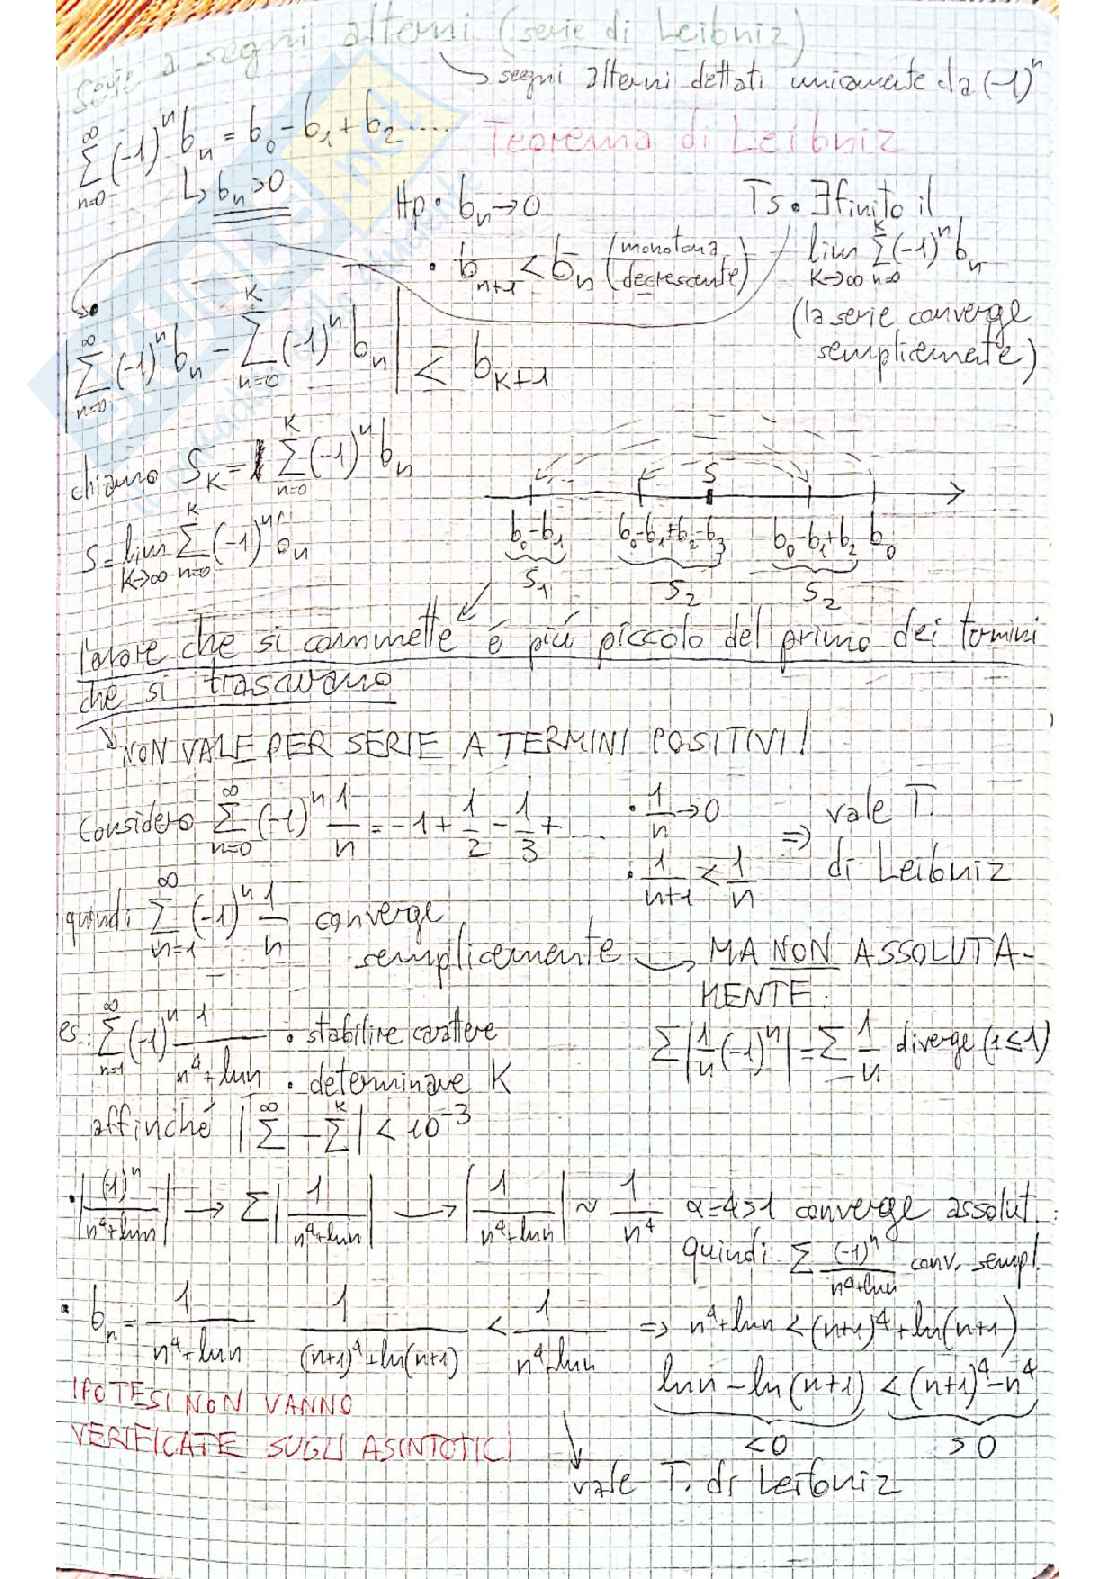 Serie a segni alterni (serie di Leibniz)
↳ segni alterni dettati unicamente da (-1)^n
∑_{n=0}^{∞} (-1)^n b_n = b_0 - b_1 + b_2 .....
↳ b_n > 0
Teorema di Leibniz
Hp • b_n → 0
• b_{n+1} < b_n (monotona decrescente)
Ts • ∃ finito il
lim_{K→∞} ∑_{n=0}^{K} (-1)^n b_n
(la serie converge
semplicemente)
• |∑_{n=0}^{∞} (-1)^n b_n - ∑_{n=0}^{K} (-1)^n b_n| < b_{K+1}
chiamo S_K = ∑_{n=0}^{K} (-1)^n b_n
S = lim_{K→∞} ∑_{n=0}^{K} (-1)^n b_n
S
b_0-b_1 b_0-b_1+b_2-b_3 b_0-b_1+b_2 b_0
S_1 S_2 S_2
l'errore che si commette é piú piccolo del primo dei termini
che si trascurano
↘ NON VALE PER SERIE A TERMINI POSITIVI!
Considero ∑_{n=0}^{∞} (-1)^n 1/n = -1 + 1/2 - 1/3 + ....
• 1/n → 0
• 1/(n+1) < 1/n
⇒ vale T.
di Leibniz
quindi ∑_{n=1}^{∞} (-1)^n 1/n converge
semplicemente → MA NON ASSOLUTA-
MENTE:
∑|1/n (-1)^n| = ∑ 1/n diverge (1≤1)
es: ∑_{n=1}^{∞} (-1)^n 1/(n^4+ln n) • stabilire carattere
• determinare K
affinché |∑^{∞} - ∑^{K}| < 10^{-3}
• |(-1)^n/(n^4+ln n)| → ∑|1/(n^4+ln n)| → |1/(n^4+ln n)| ~ 1/n^4 α=4>1 converge assolut.
quindi ∑ (-1)^n/(n^4+ln n) conv. sempl.
• b_n = 1/(n^4+ln n) 1/((n+1)^4+ln(n+1)) < 1/(n^4+ln n) ⇒ n^4+ln n < (n+1)^4+ln(n+1)
ln n - ln(n+1) < (n+1)^4 - n^4
<0 >0
IPOTESI NON VANNO
VERIFICATE SUGLI ASINTOTICI
↓ vale T. di Leibniz